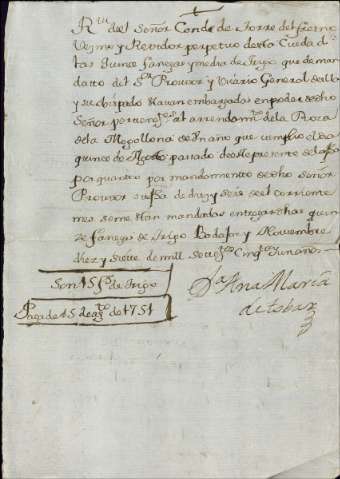 Rvi del Señor Conde de Torre del Fresno
Vezino y Rexidor perpetuo desta Ciudad
quinze fanegas y media de trigo que de man
datto del Sr Provisor y Vicario General della
y su obispado estavan embargadas en poder de dho
Señor pertenezte al arrendamto de la Roca
de la Mepollona de un año que cumplio el dia
quinze de Agosto passado deste presente
por quanto por mandamiento de dho señor
Provisor su fha de diez y seis del corriente
mes se me han mandado entregar dhas quin
ze fanegas de trigo Badajoz y Noviembre
diez y siete de mil settezos cinqta y un años
Son 15 fs de trigo
Paga de 15 de agto de 1751
Da Ana Maria
de tobar